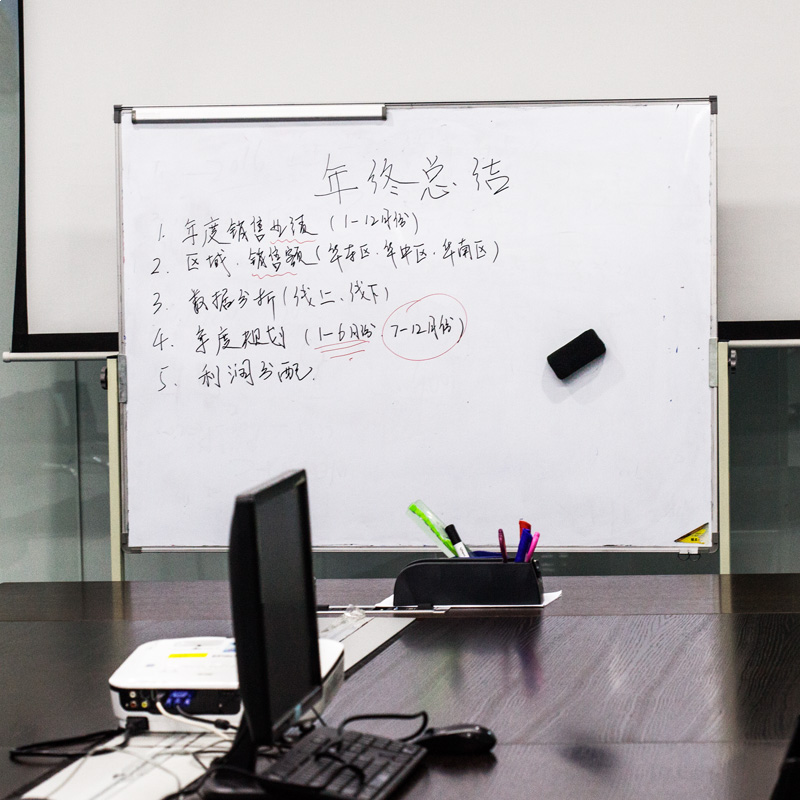 年终总结
1. 年度销售业绩（1-12月份）
2. 区域·销售额（华东区·华中区·华南区）
3. 数据分析（线上、线下）
4. 年度规划（1-6月份 7-12月份）
5. 利润分配.